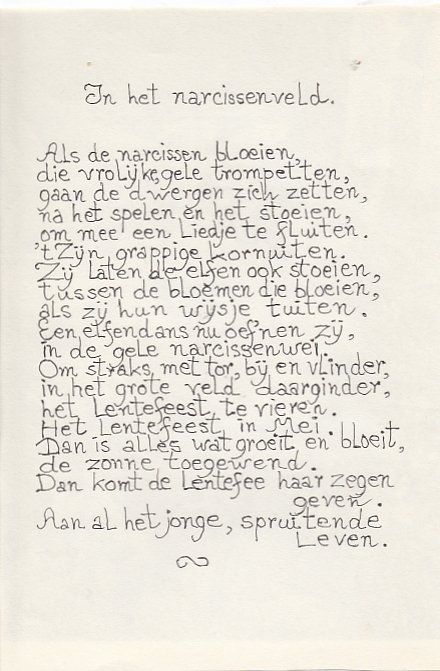 In het narcissenveld.
Als de narcissen bloeien,
die vrolijke, gele trompetten,
gaan de dwergen zich zetten,
na het spelen en het stoeien,
om mee een liedje te fluiten.
't Zijn grappige kornuiten.
Zij laten de elfen ook stoeien,
tussen de bloemen die bloeien,
als zij hun wijsje tuiten.
Een elfendans nu oef'nen zij,
in de gele narcissenwei.
Om straks, met tor, bij en vlinder,
in het grote veld daarginder,
het Lentefeest, te vieren.
Het Lentefeest, in Mei.
Dan is alles wat groeit en bloeit,
de zonne toegewend.
Dan komt de Lentefee haar zegen
geven.
Aan al het jonge, spruitende
Leven.